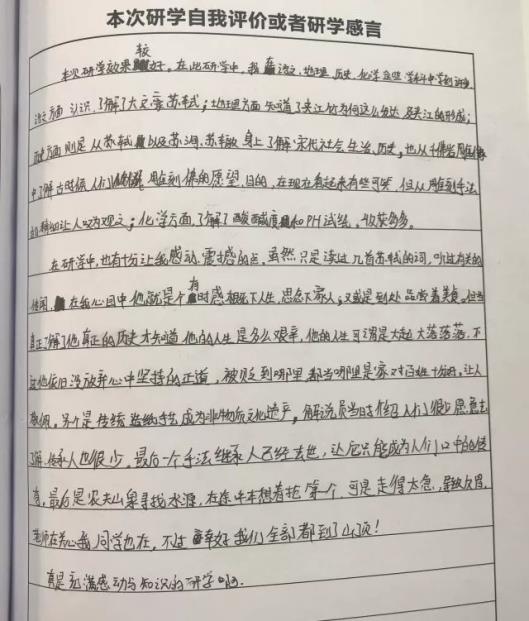 本次研学自我评价或者研学感言
本次研学效果较好。在此研学中,我在语文,地理,历史,化学这些学科中学到许多,
语文方面认识,了解了大文豪苏轼;地理方面知道了夹江竹为何这么发达及夹江的形成;
历史方面则是从苏轼以及苏洵、苏辙身上了解宋代社会生活、历史,也从千佛岩
中了解古时候人们雕刻佛的愿望、目的,在现在看起来有些可笑,但从雕刻手法
的精细让人叹为观之;化学方面,了解了酸碱度和PH试纸,收获多多。
在研学中,也有十分让我感动、震撼的点,虽然只是读过几首苏轼的词,听过有关的
传闻,在我心目中他就是个有时感慨天下人生,思念家人;又或是到处品尝着美食。但当
真正了解了他真正的历史才知道他的人生是多么艰辛,他的人生可谓是大起大落落落,不
过他依旧没放弃心中坚持的正道,被贬到哪里都当哪里是家对百姓十分好,让人
敬佩。另个是传统手艺成为非物质文化遗产,解说员当时介绍人们很少愿意去
了解,传承人也很少,最后一个手法继承人已经去世,让它只能成为人们口中的传
奇,最后是农夫山泉寻找水源,在途中本想着抢第一个,可是走得太急,导致
老师在关心我同学也在,不过幸好我们全部都到了山顶!
真是充满感动与知识的研学啊。